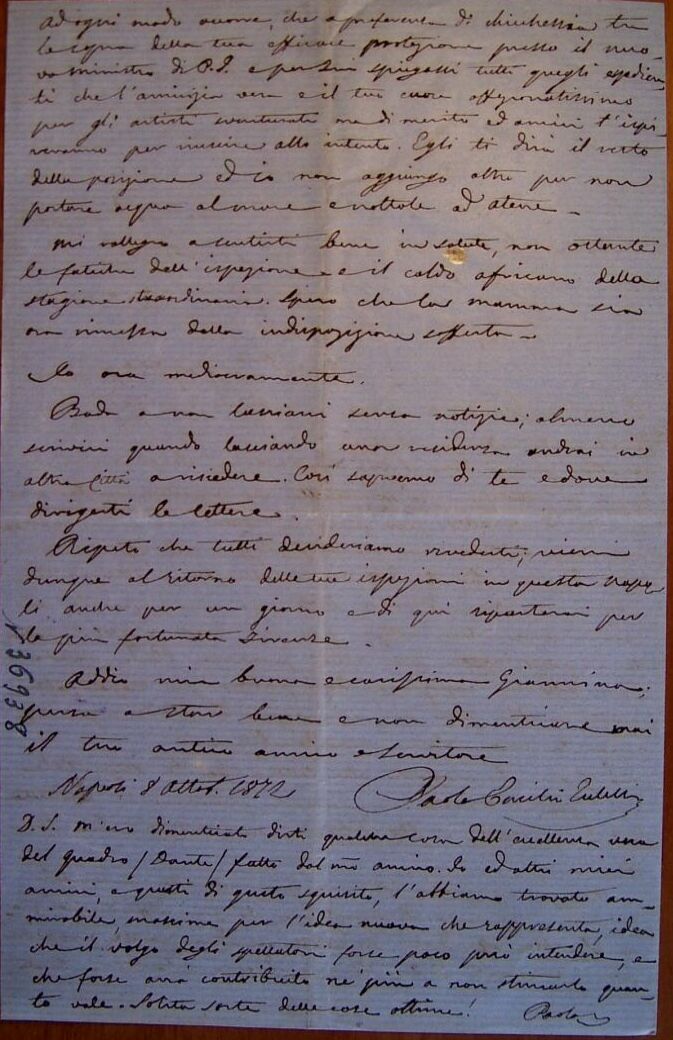 ad ogni modo occorre, che a preferenza di chicchessia tu
le sona della tua efficace protezione presso il nuo-
vo ministro di P. I. e perciò spieghi tutti quegli espedien-
ti che l'amicizia vera e il tuo cuore affezionatissimo
per gli artisti sventurati ma di merito ed amici t'ispi-
reranno per riuscire allo intento. Egli ti dirà il resto
della posizione ed io non aggiungo altro per non
portare acqua al mare e nottole ad Atene.
Mi rallegro a sentirti bene in salute, non ostante
le fatiche dell'ispezione e il caldo africano della
stagione straordinaria. Spero che la mamma sia
ora rimessa dalla indisposizione sofferta.
Io ora mediocramente.
Bada a non lasciarci senza notizie; almeno
scrivici quando lasciando una residenza andrai in
altra Città a risiedere. Così sapremo di te e dove
dirigerti le lettere.
Ripeto che tutti desideriamo rivederti; vieni
dunque al ritorno delle tue ispezioni in questa Napo-
li anche per un giorno e di qui ripartirai per
la più fortunata Firenze.
Addio mia buona e carissima Giannina;
pensa a star bene e non dimenticare mai
il tuo antico amico e servitore
Napoli 8 Ottob. 1872
Paolo
P. S. M'ero dimenticato dirti qualche cosa dell'eccellenza vera
del quadro /Dante/ fatto dal mio amico. Io ed altri miei
amici, e questi di gusto squisito, l'abbiamo trovato am-
mirabile, massime per l'idea nuova che rappresenta, idea
che il volgo degli spettatori forse poco può intendere, e
che forse avrà contribuito ne' più a non stimarlo quan-
to vale. Solita sorte delle cose ottime!
Paolo
N 36938